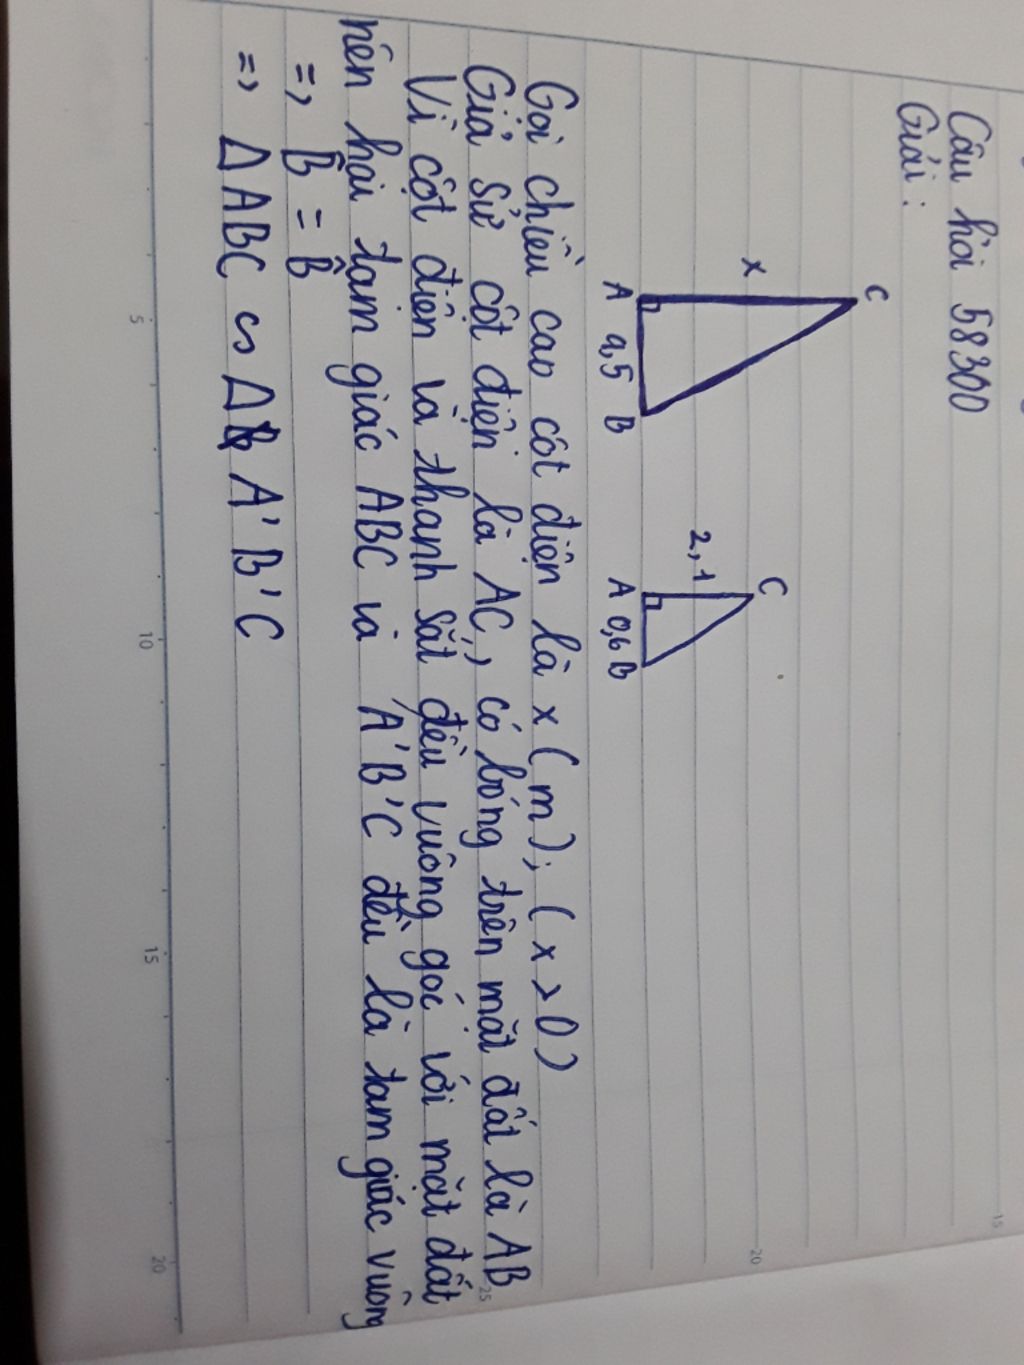 Câu hỏi 58300
Giải:
C
x
A 9,5 B
C
2,1
A 0,6 B
Gọi chiều cao cột điện là x (m); (x > 0)
Giả sử cột điện là AC, có bóng trên mặt đất là AB
Vì cột điện và thanh sắt đều vuông góc với mặt đất
nên hai tam giác ABC và A'B'C đều là tam giác vuông
=> B̂ = B̂
=> Δ ABC ∽ Δ A'B'C
5
10
15
20
15
20
25